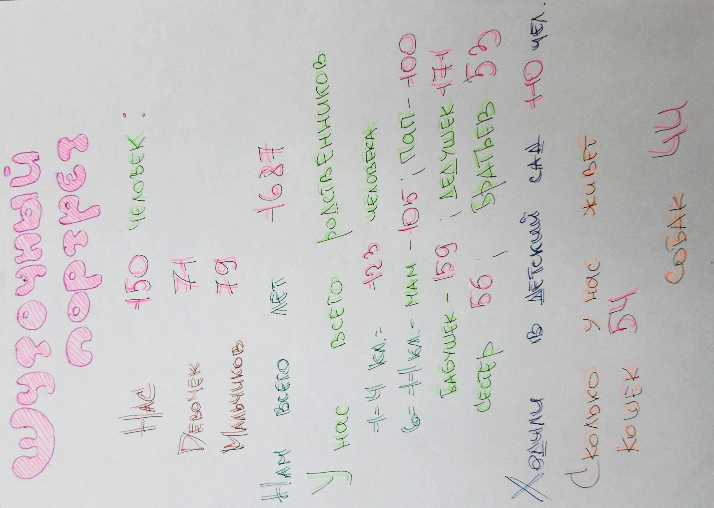 Шуточный
портрет
Нас 150 человек:
Девочек 71
Мальчиков 79
Нам всего лет 1687
У нас всего родственников
1-4 кл. - 123 человека
6-11 кл. - мам - 105; пап - 100
Бабушек - 159; дедушек - 171
сестер 56; братьев 53
Ходили в детский сад 110 чел.
Сколько у нас живет
кошек 54 собак 44